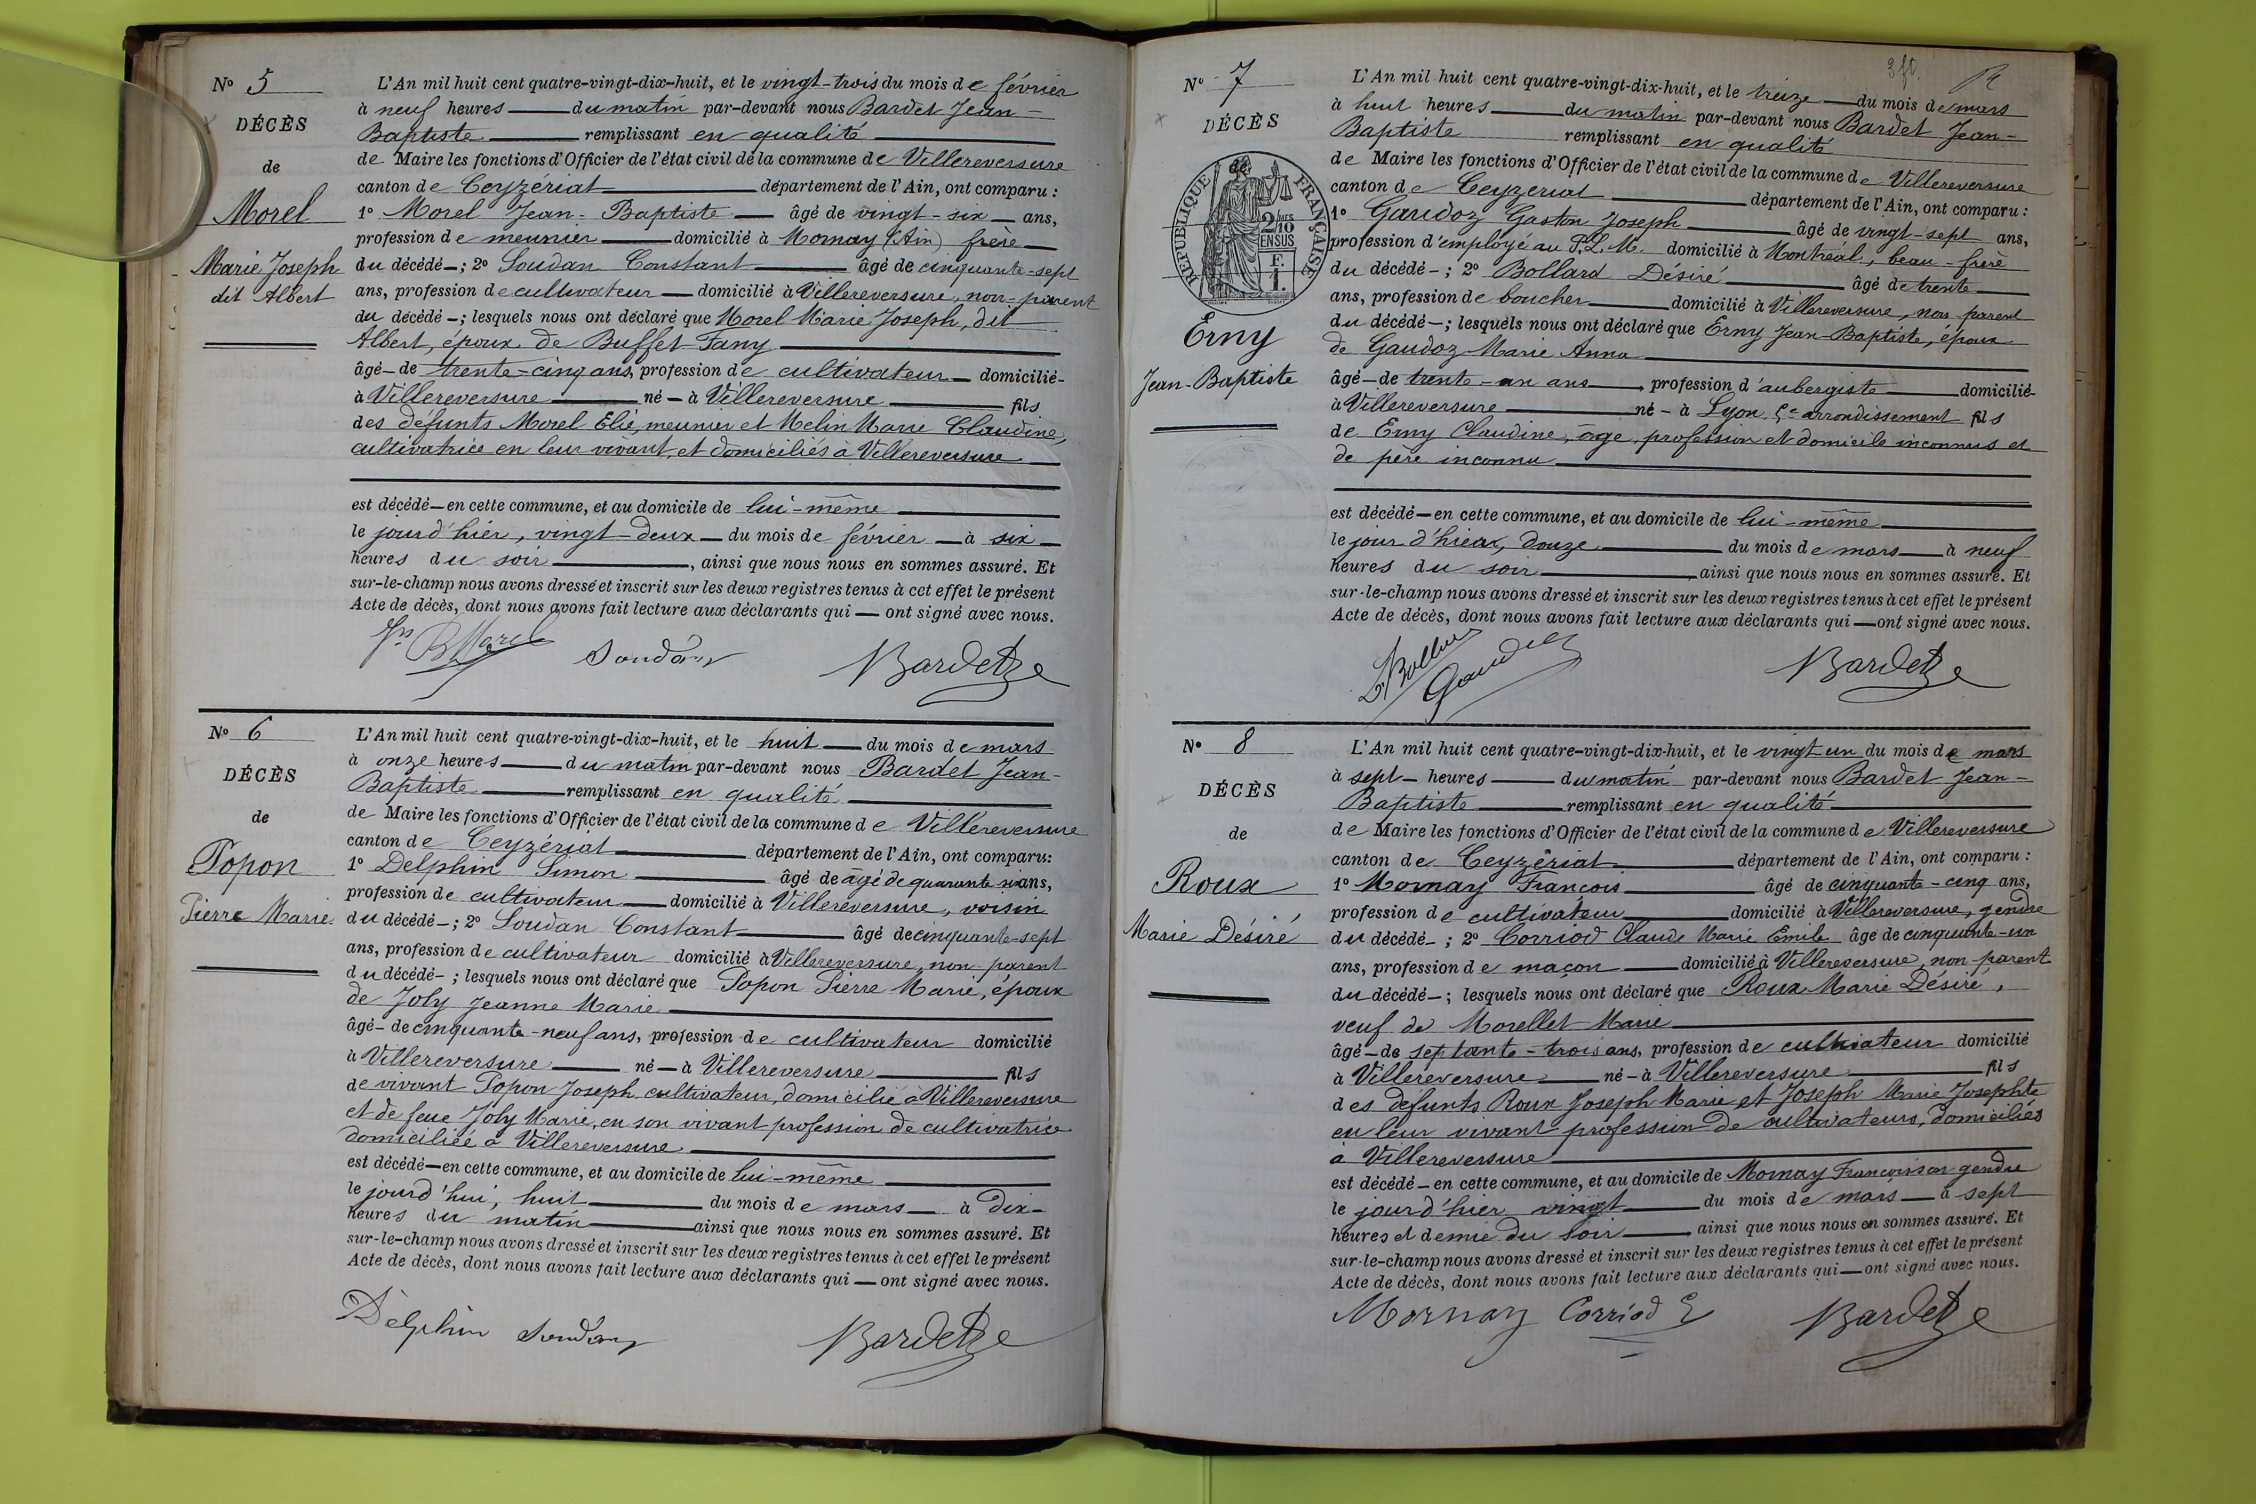 N° 5
DÉCÈS
de
Morel
Marie Joseph
dit Albert
L'An mil huit cent quatre-vingt-dix-huit, et le vingt-trois du mois de février
à neuf heures du matin par-devant nous Bardet Jean-
Baptiste remplissant en qualité
de Maire les fonctions d'Officier de l'état civil de la commune de Villereversure
canton de Ceyzériat département de l'Ain, ont comparu :
1° Morel Jean-Baptiste âgé de vingt-six ans,
profession de meunier domicilié à Mornay (Ain) frère
du décédé ; 2° Soudan Constant âgé de cinquante-sept
ans, profession de cultivateur domicilié à Villereversure, non-parent
du décédé ; lesquels nous ont déclaré que Morel Marie Joseph, dit
Albert, époux de Buffet Fany
âgé de trente-cinq ans, profession de cultivateur domicilié
à Villereversure né à Villereversure fils
des défunts Morel Elie, meunier et Melin Marie Claudine,
cultivatrice en leur vivant, et domiciliés à Villereversure
est décédé en cette commune, et au domicile de lui-même
le jour d'hier, vingt-deux du mois de février à six
heures du soir, ainsi que nous nous en sommes assuré. Et
sur-le-champ nous avons dressé et inscrit sur les deux registres tenus à cet effet le présent
Acte de décès, dont nous avons fait lecture aux déclarants qui ont signé avec nous.
Morel Soudan Bardet
N° 6
DÉCÈS
de
Popon
Pierre Marie
L'An mil huit cent quatre-vingt-dix-huit, et le huit du mois de mars
à onze heures du matin par-devant nous Bardet Jean-
Baptiste remplissant en qualité
de Maire les fonctions d'Officier de l'état civil de la commune de Villereversure
canton de Ceyzériat département de l'Ain, ont comparu :
1° Delphin Simon âgé de âgé de quarante six ans,
profession de cultivateur domicilié à Villereversure, voisin
du décédé ; 2° Soudan Constant âgé de cinquante-sept
ans, profession de cultivateur domicilié à Villereversure, non-parent
du décédé ; lesquels nous ont déclaré que Popon Pierre Marie, époux
de Joly Jeanne Marie
âgé de cinquante-neuf ans, profession de cultivateur domicilié
à Villereversure né à Villereversure fils
de vivant Popon Joseph, cultivateur, domicilié à Villereversure
et de feue Joly Marie, en son vivant profession de cultivatrice
domiciliée à Villereversure
est décédé en cette commune, et au domicile de lui-même
le jourd'hui, huit du mois de mars à dix
heures du matin ainsi que nous nous en sommes assuré. Et
sur-le-champ nous avons dressé et inscrit sur les deux registres tenus à cet effet le présent
Acte de décès, dont nous avons fait lecture aux déclarants qui ont signé avec nous.
Delphin Soudan Bardet
N° 7
DÉCÈS
de
RÉPUBLIQUE FRANÇAISE
2/10
EN SUS
F.
1.
Erny
Jean-Baptiste
L'An mil huit cent quatre-vingt-dix-huit, et le treize du mois de mars
à huit heures du matin par-devant nous Bardet Jean-
Baptiste remplissant en qualité
de Maire les fonctions d'Officier de l'état civil de la commune de Villereversure
canton de Ceyzeriat département de l'Ain, ont comparu :
1° Gaudoz Gaston Joseph âgé de vingt-sept ans,
profession d'employé au P.L.M. domicilié à Montréal, beau-frère
du décédé ; 2° Bollard Désiré âgé de trente
ans, profession de boucher domicilié à Villereversure, non parent
du décédé ; lesquels nous ont déclaré que Erny Jean-Baptiste, époux
de Gaudoz Marie Anna
âgé de trente-un ans, profession d'aubergiste domicilié
à Villereversure né à Lyon, 5e arrondissement fils
de Erny Claudine, âge, profession et domicile inconnus et
de père inconnu
est décédé en cette commune, et au domicile de lui-même
le jour d'hier, douze du mois de mars à neuf
heures du soir ainsi que nous nous en sommes assuré. Et
sur-le-champ nous avons dressé et inscrit sur les deux registres tenus à cet effet le présent
Acte de décès, dont nous avons fait lecture aux déclarants qui ont signé avec nous.
Bardet
N° 8
DÉCÈS
de
Roux
Marie Désiré
L'An mil huit cent quatre-vingt-dix-huit, et le vingt un du mois de mars
à sept heures du matin par-devant nous Bardet Jean-
Baptiste remplissant en qualité
de Maire les fonctions d'Officier de l'état civil de la commune de Villereversure
canton de Ceyzériat département de l'Ain, ont comparu :
1° Mornay François âgé de cinquante-cinq ans,
profession de cultivateur domicilié à Villereversure, gendre
du décédé ; 2° Corriod Claude Marie Emile âgé de cinquante-un
ans, profession de maçon domicilié à Villereversure, non-parent
du décédé ; lesquels nous ont déclaré que Roux Marie Désiré,
veuf de Morellet Marie
âgé de septante-trois ans, profession de cultivateur domicilié
à Villereversure né à Villereversure fils
des défunts Roux Joseph Marie et Joseph Marie Josephte
en leur vivant profession de cultivateurs, domiciliés
à Villereversure
est décédé en cette commune, et au domicile de Mornay François son gendre
le jour d'hier vingt du mois de mars à sept
heures et demie du soir ainsi que nous nous en sommes assuré. Et
sur-le-champ nous avons dressé et inscrit sur les deux registres tenus à cet effet le présent
Acte de décès, dont nous avons fait lecture aux déclarants qui ont signé avec nous.
Mornay Corriod Bardet